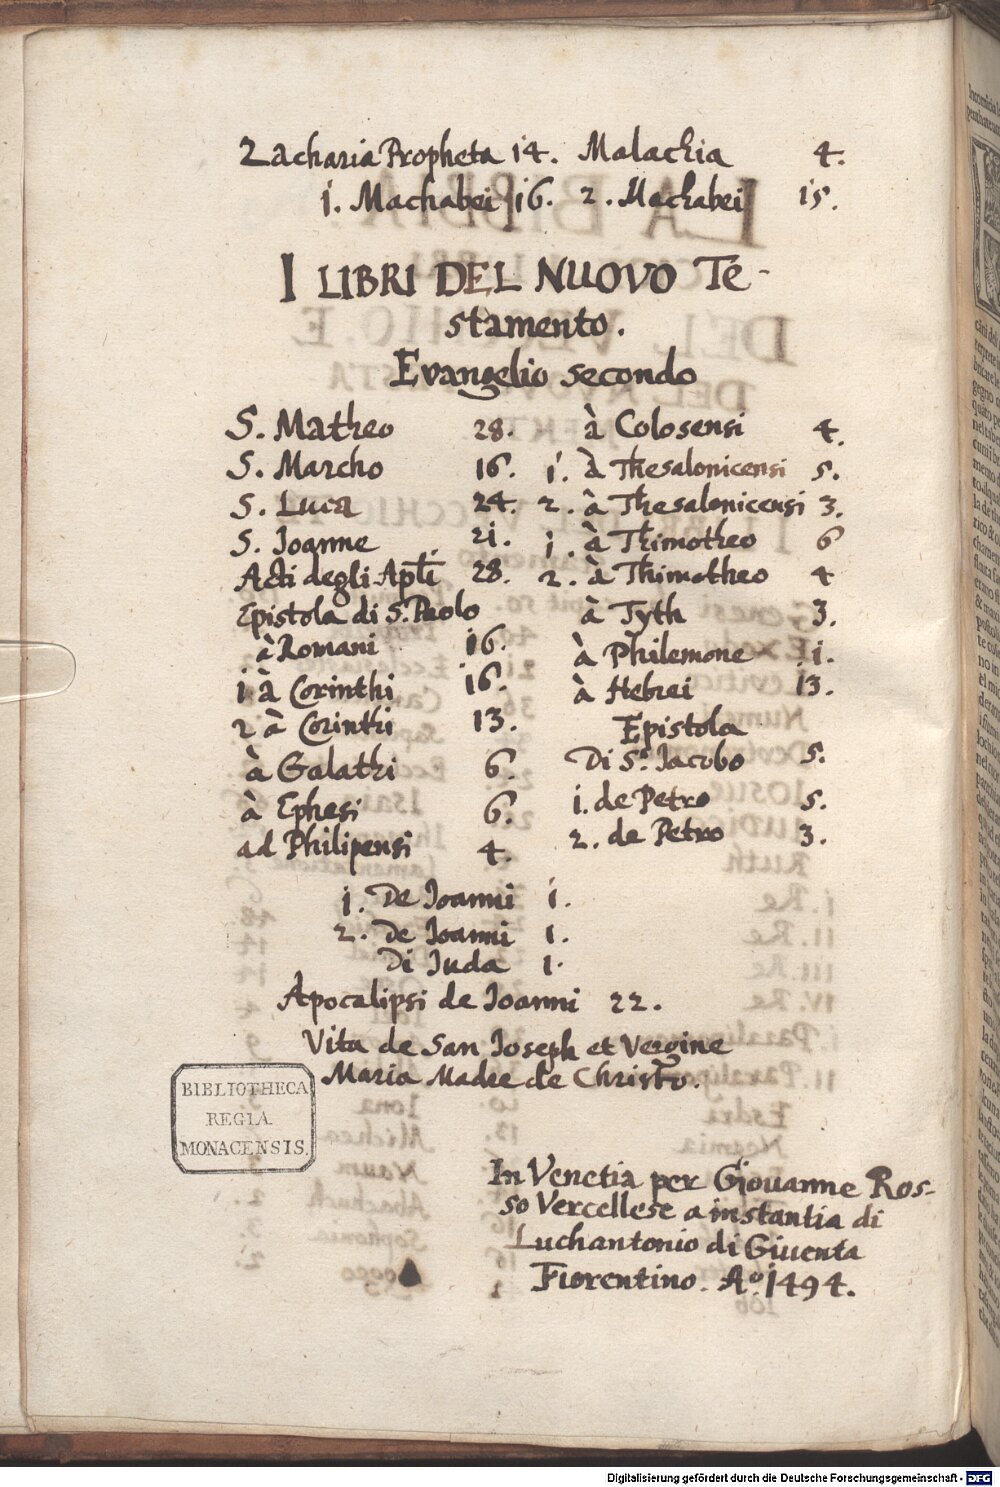 Zacharia Propheta 14. Malachia 4.
1. Machabei 16. 2. Machabei 15.
I LIBRI DEL NUOVO Te-
stamento.
Evangelio secondo
S. Matheo 28.
S. Marcho 16.
S. Luca 24.
S. Joanne 21.
Acti degli Apłi 28.
Epistola di S. Paolo
à Romani 16.
1 à Corinthi 16.
2 à Corinthi 13.
à Galathi 6.
à Ephesi 6.
ad Philipensi 4.
à Colosensi 4.
1. à Thesalonicensi 5.
2. à Thesalonicensi 3.
1. à Thimotheo 6
2. à Thimotheo 4
à Tyth 3.
à Philemone 1.
à Hebrei 13.
Epistola
Di S.º Jacobo 5.
1. de Petro 5.
2. de Petro 3.
1. De Joanni 1.
2. De Joanni 1.
Di Juda 1.
Apocalipsi de Joanni 22.
Vita de San Joseph et Vergine
Maria Madre de Christo.
BIBLIOTHECA
REGIA
MONACENSIS.
In Venetia per Giouanne Ros-
so Vercellese a instantia di
Luchantonio di Giuenta
Fiorentino. Aº. 1494.
Digitalisierung gefördert durch die Deutsche Forschungsgemeinschaft - DFG